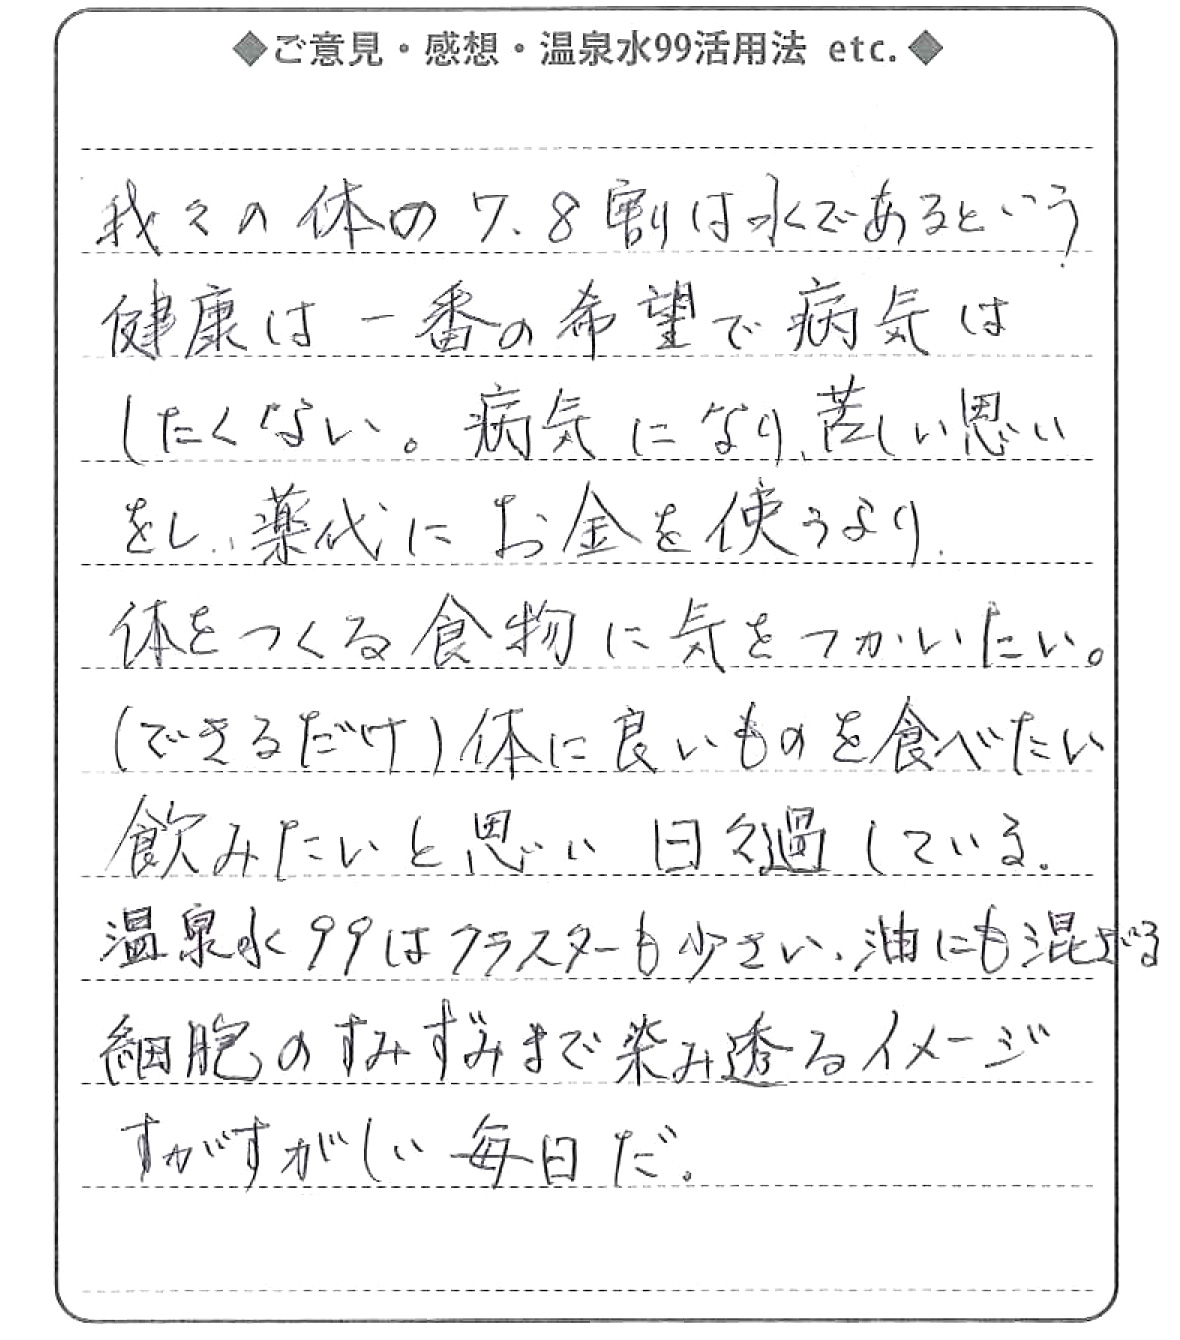 ◆ご意見・感想・温泉水99活用法 etc.◆
我々の体の7.8割は水であるという
健康は一番の希望で病気は
したくない。病気になり、苦しい思い
をし、薬代にお金を使うより、
体をつくる食物に気をつかいたい。
(できるだけ)体に良いものを食べたい
飲みたいと思い 日々過している。
温泉水99はクラスターも少さい、油にも混ざる
細胞のすみずみまで染み透るイメージ
すがすがしい毎日だ。